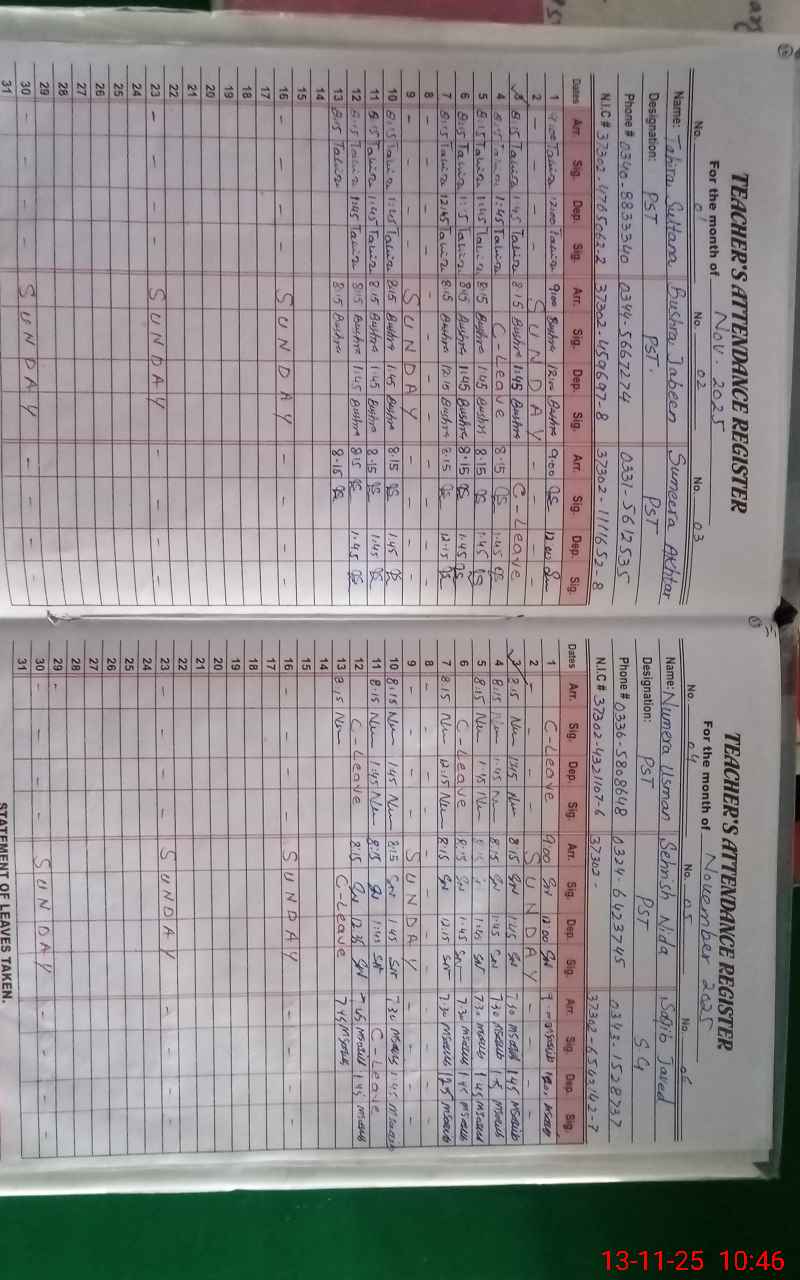 TEACHER'S ATTENDANCE REGISTER
For the month of Nov. 2025
No. 01 No. 02 No. 03
Name: Tahira Sultana Bushra Jabeen Sumeera Akhtar
Designation: PST PST. PST
Phone # 0340-8833340 0344-5667274 0331-5612535
N.I.C # 37302-4765062-2 37302-459697-8 37302-1111652-8
Dates Arr. Sig. Dep. Sig. Arr. Sig. Dep. Sig. Arr. Sig. Dep. Sig.
1 9:00 Tahira 12:00 Tahira 9:00 Bushra 12:00 Bushra 9:00 12:00
2 - - - - SUNDAY - - - -
3 8:15 Tahira 1:45 Tahira 8:15 Bushra 1:45 Bushra C-Leave
4 8:15 Tahira 1:45 Tahira C-Leave 8:15 1:45
5 8:15 Tahira 1:45 Tahira 8:15 Bushra 1:45 Bushra 8:15 1:45
6 8:15 Tahira Tahira 8:15 Bushra 1:45 Bushra 8:15 1:45
7 8:15 Tahira 12:15 Tahira 8:15 Bushra 12:15 Bushra 8:15 12:15
8 - - - - - - - - - - - -
9 - - - - SUNDAY - - - -
10 8:15 Tahira 1:45 Tahira 8:15 Bushra 1:45 Bushra 8:15 1:45
11 8:15 Tahira 1:45 Tahira 8:15 Bushra 1:45 Bushra 8:15 1:45
12 8:15 Tahira 1:45 Tahira 8:15 Bushra 1:45 Bushra 8:15 1:45
13 8:15 Tahira 8:15 Bushra 8:15
14
15
16 - - - - SUNDAY - - - -
17
18
19
20
21
22
23 - - - - SUNDAY - - - -
24
25
26
27
28
29
30 - - - - SUNDAY - - - -
31
TEACHER'S ATTENDANCE REGISTER
For the month of November 2025
No. 04 No. 05 No. 06
Name: Numera Usman Sehrish Nida Saqib Javed
Designation: PST PST SG
Phone # 0336-5808648 0324-6423745 0343-1528737
N.I.C # 37302-4321107-6 37302- 37302-6543142-7
Dates Arr. Sig. Dep. Sig. Arr. Sig. Dep. Sig. Arr. Sig. Dep. Sig.
1 C-Leave 9:00 SN 12:00 SN
2 - - - - SUNDAY - - - -
3 8:15 Num 1:45 Num 8:15 SN 1:45 SN 7:30 1:45
4 8:15 Num 1:45 Num 8:15 SN 1:45 SN 7:30
5 8:15 Num 1:45 Num 8:15 1:45 SN 7:30 1:45
6 C-Leave 8:15 SN 1:45 SN 7:30 1:45
7 8:15 Num 12:15 Num 8:15 SN 12:15 SN 7:30 12:15
8 - - - - - - - - - - - -
9 - - - - SUNDAY - - - -
10 8:15 Num 1:45 Num 8:15 SN 1:45 SN 7:30 1:45
11 8:15 Num 1:45 Num 8:15 SN 1:45 SN C-Leave
12 C-Leave 8:15 SN 12:35 SN 7:45 1:45
13 8:15 Num C-Leave 7:45
14
15
16 - - - - SUNDAY - - - -
17
18
19
20
21
22
23 - - - - SUNDAY - - - -
24
25
26
27
28
29
30 - - - - SUNDAY - - - -
31
STATEMENT OF LEAVES TAKEN.
13-11-25 10:46